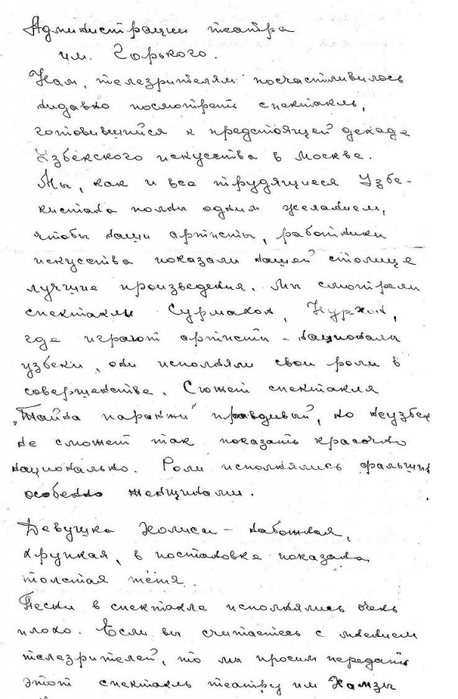 Администрации театра
им. Горького.
Нам, телезрителям посчастливилось
недавно посмотреть спектакль,
готовившийся к предстоящей декаде
Узбекского искусства в Москве.
Мы, как и все трудящиеся Узбе-
кистана полны одним желанием,
чтобы наши артисты, работники
искусства показали нашей столице
лучшие произведения. Мы смотрели
спектакли Сурмахон, Нурхон,
где играют артисты - национали
узбеки, они исполняли свои роли в
совершенстве. Сюжет спектакля
„Тайна паранжи" правдивый, но неузбек
не сможет так показать красочно
национально. Роли исполнялись фальшив
особенно женщинами.
Девушка Холиси - набожная,
хрупкая, в постановке показана
толстая тётя.
Песни в спектакле исполнялись очень
плохо. Если вы считаетесь с мнением
телезрителей, то мы просим передать
этот спектакль театру им Хамзы